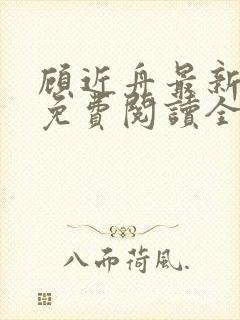 顾近舟最新
免費閱讀全
八而荷風.